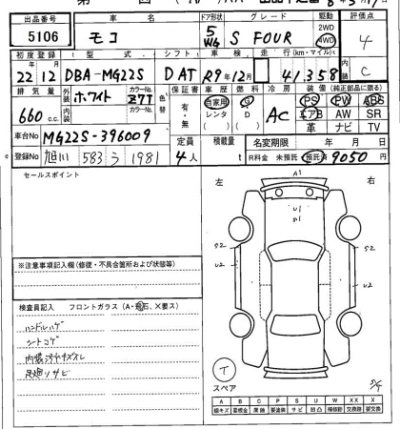 出品番号 車名 ドア形状 グレード 駆動 評価点
5106 モコ 5 WG S FOUR 2WD 4WD 4
初度登録 型式 シフト 車検 走行(km・マイル) 内装
22年12月 DBA-MG22S D AT R9年12月 41,358 C
排気量 外装 ホワイト カラーNo. Z7T 色替 保証書 車歴 燃料 冷房 装備(純正部品に限る)
660 c.c. 有・無 自家用 レンタ ( ) G D ( ) AC PS PW ABS
エアB AW SR
革 ナビ TV
車台No MG22S-396009 定員 積載量 名変期限 年 月 日
登録No 旭川 583 う 1981 4人 t R料金 未預託 預託 9050 円
セールスポイント 左 右
A1
U1
S2 S2
U2 U2
※注意事項記入欄(修復・不具合箇所および状態等)
検査員記入 フロントガラス(A・飛石、X要ス)
ハンドルハゲ
シートコゲ
内張汚れキズスレ
足廻リサビ
T
スペア
A B C P S U W X XX
線キズ サビ 凹凸